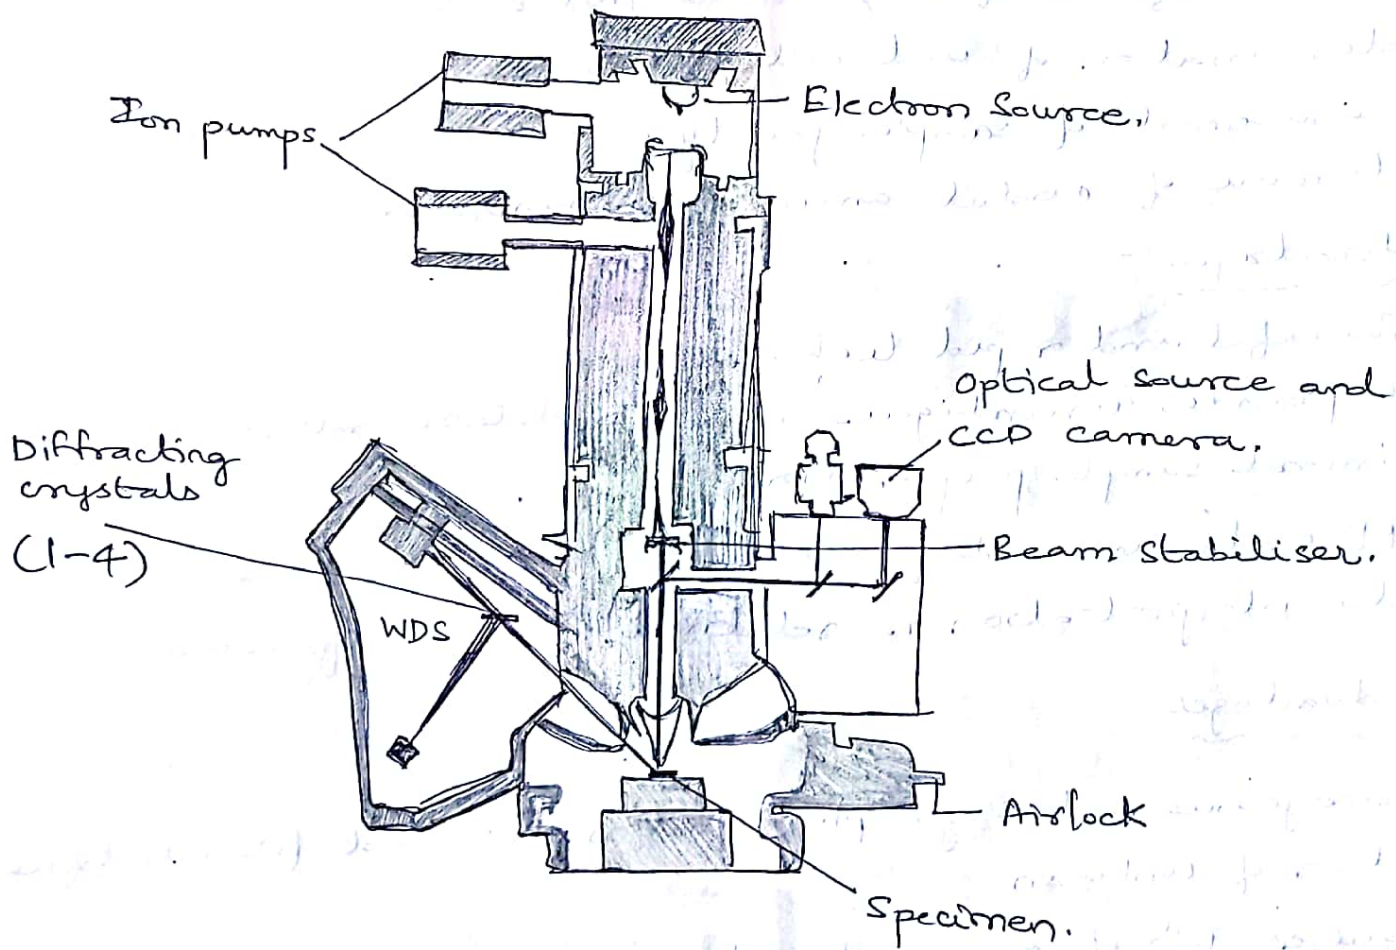 Ion pumps
Electron Source.
Optical source and
CCD camera.
Diffracting
crystals
(1-4)
WDS
Beam Stabiliser.
Airlock
Specimen.